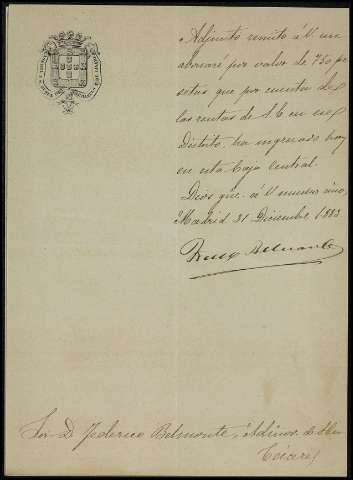 Adjunto remito á V. un
abonaré por valor de 750 pe
setas que por cuenta de
las rentas de S. E. en ese
Distrito, ha ingresado hoy
en esta Caja Central.
Dios gue. á V. muchos años,
Madrid 31 Diciembre 1883
Belmonte
Sor. D. Federico Belmonte, Admor. de